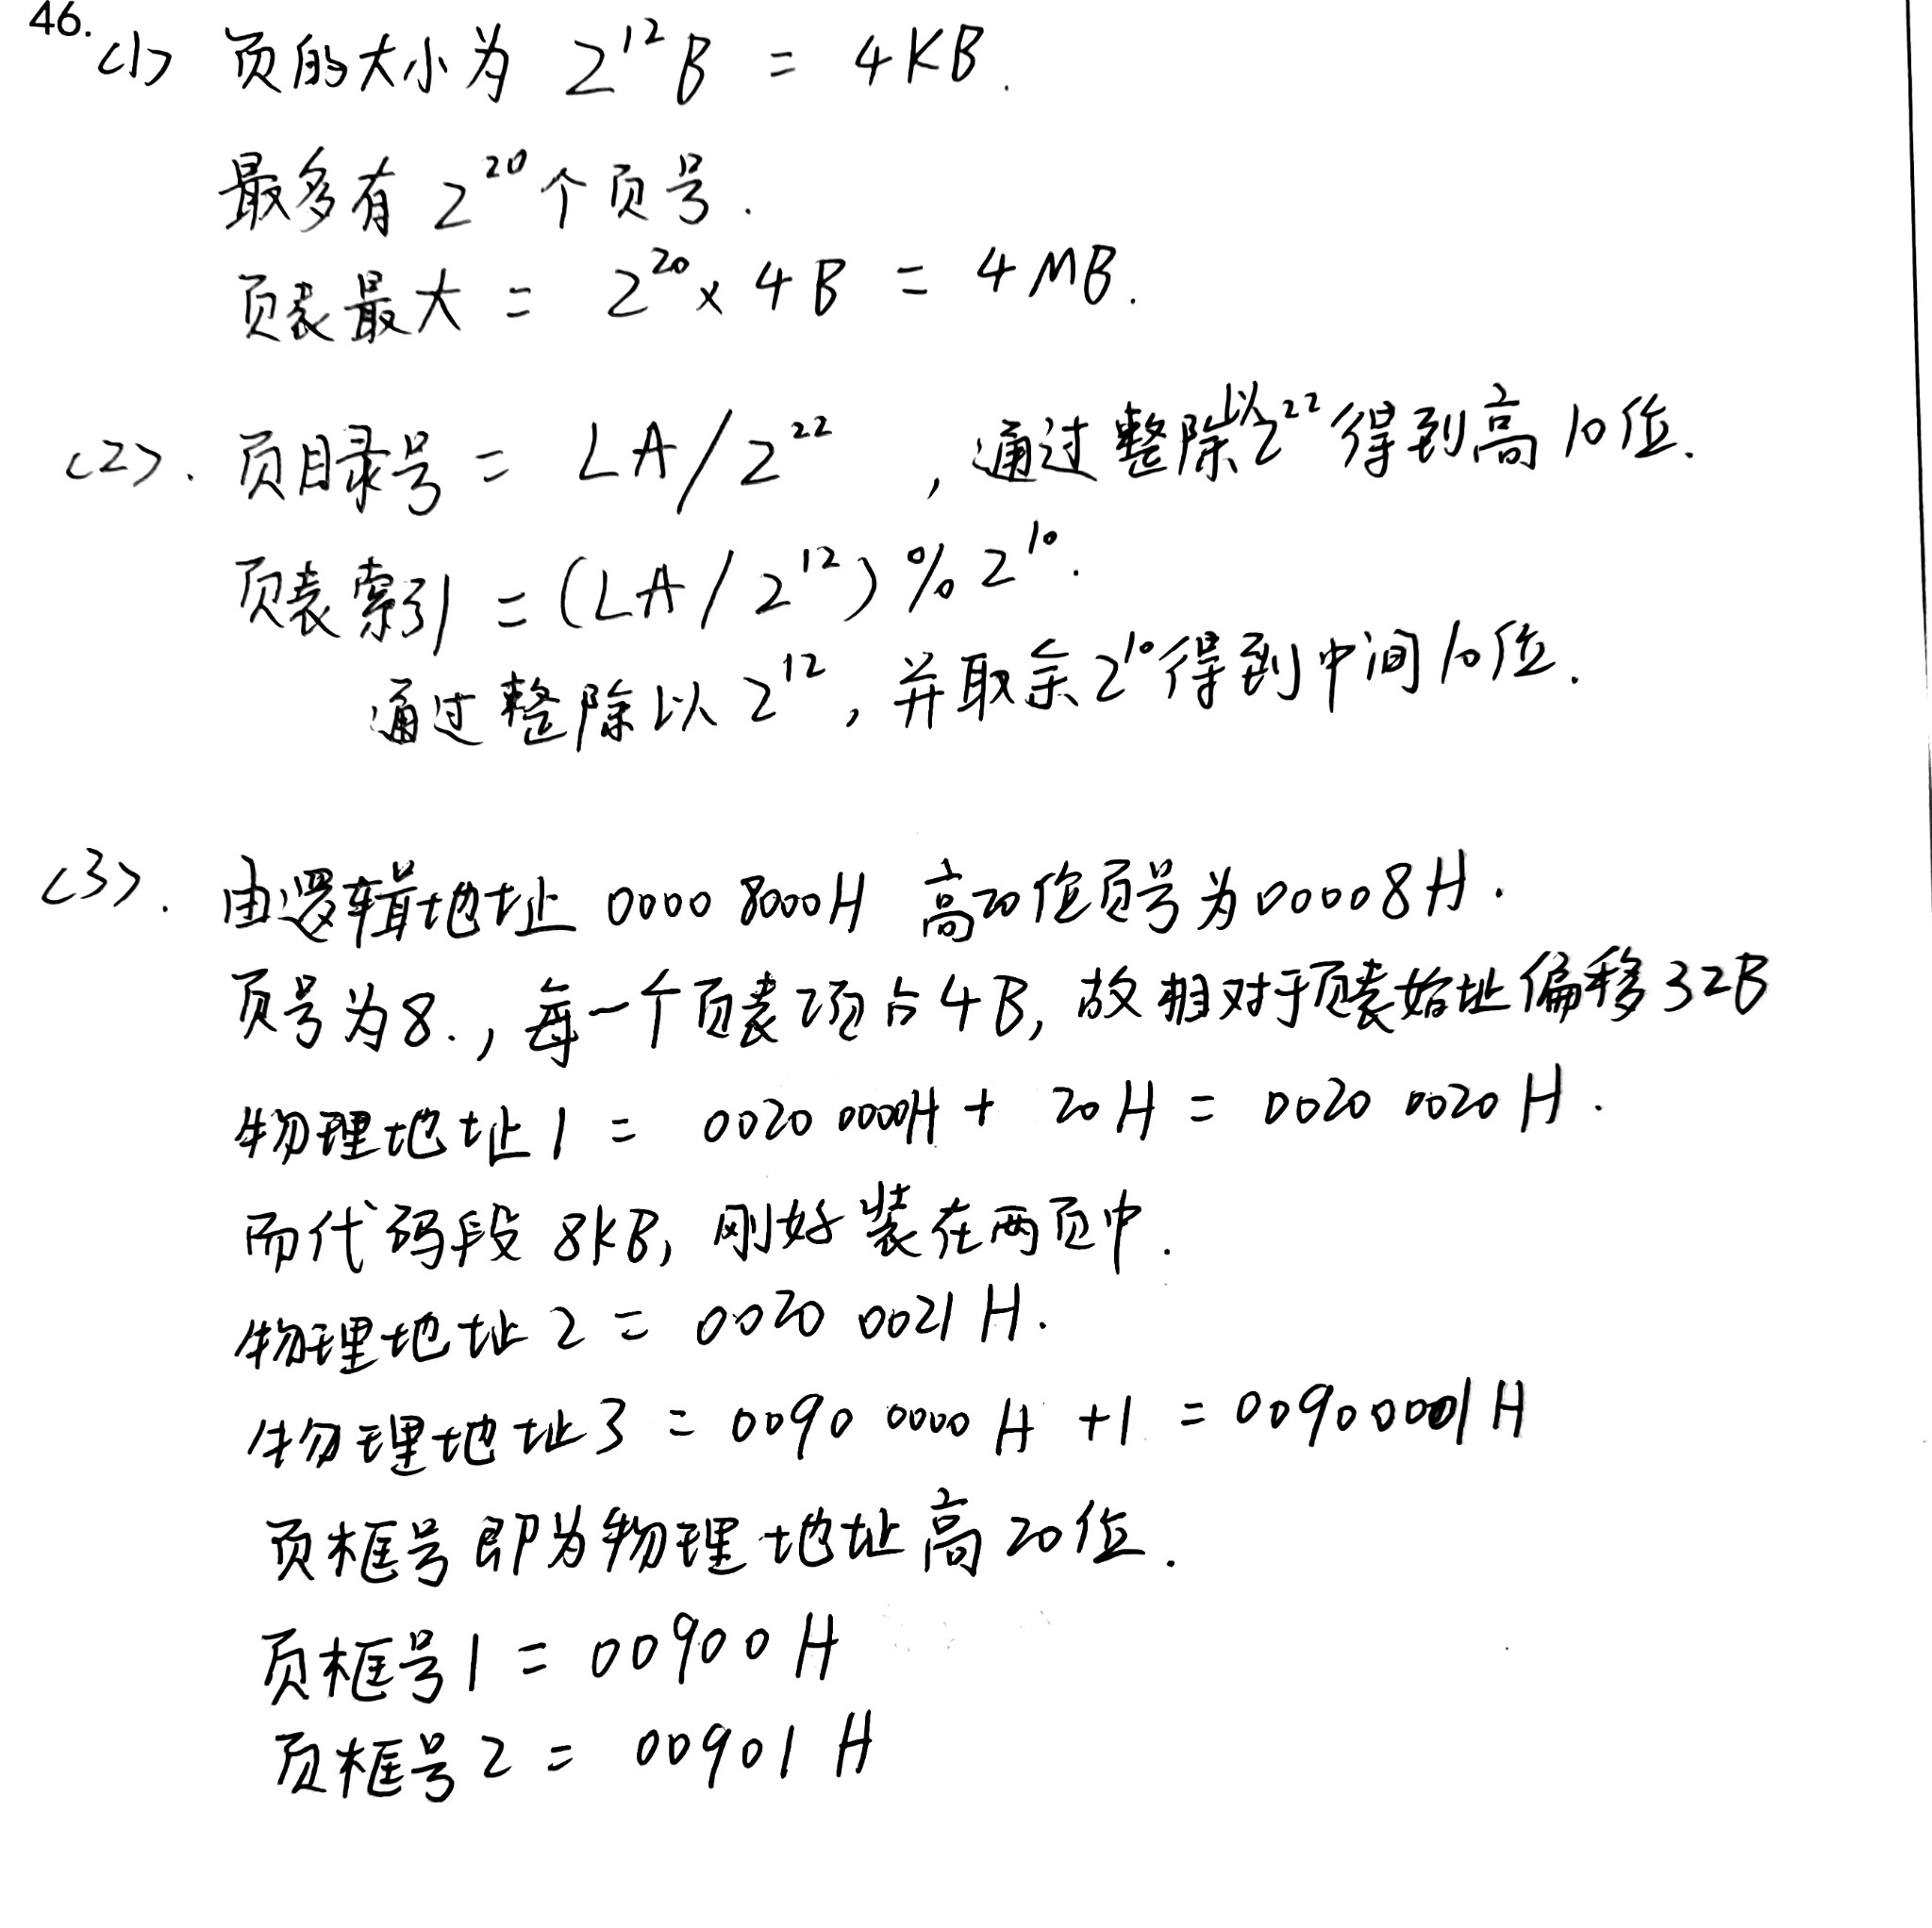 46.
(1) 页的大小为 2^12 B = 4KB.
最多有 2^20 个页号.
页表最大 = 2^20 × 4B = 4MB.
(2). 页目录号 = LA/2^22 , 通过整除以2^22得到高10位.
页表索引 = (LA/2^12)%2^10.
通过整除以2^12, 并取余2^10得到中间10位.
(3). 由逻辑地址 0000 8000H 高20位页号为00008H.
页号为8., 每一个页表项占4B, 故相对于页表始址偏移32B
物理地址1 = 0020 0000H + 20H = 0020 0020H.
而代码段8KB, 刚好装在两页中.
物理地址2 = 0020 0021H.
物理地址3 = 0090 0000H +1 = 00900001H
页框号即为物理地址高20位.
页框号1 = 00900H
页框号2 = 00901H